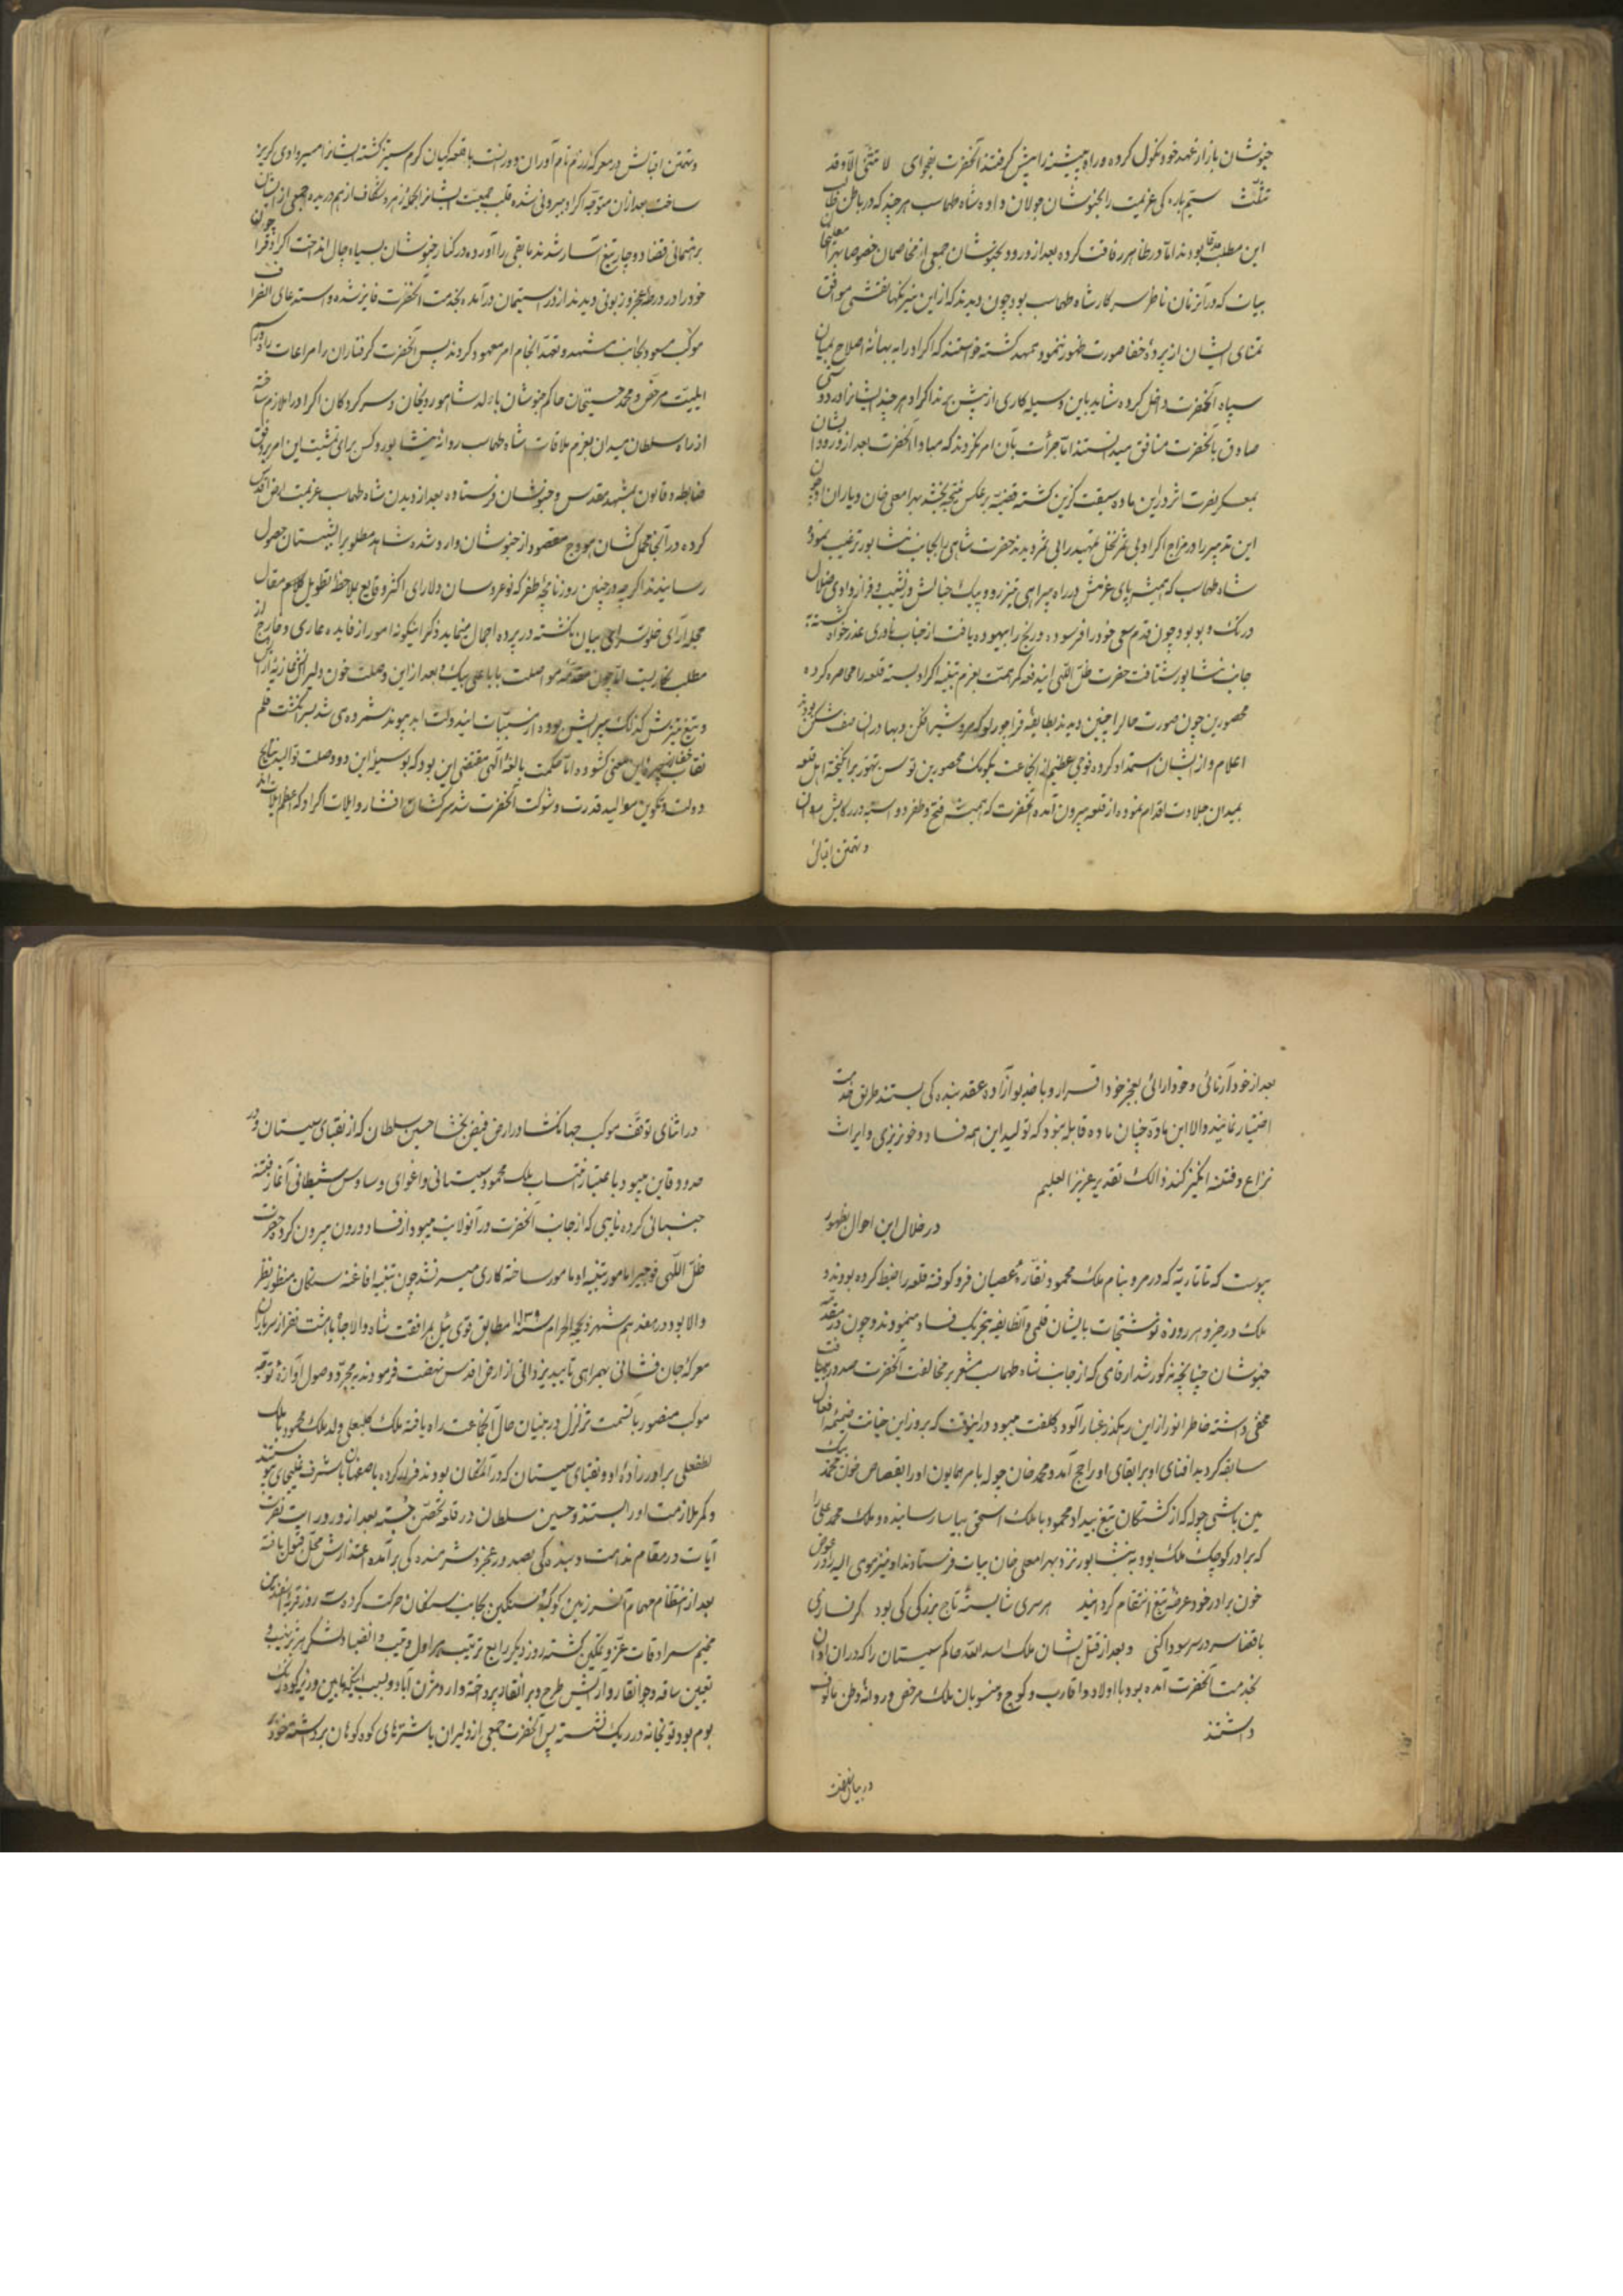 خبوشان بازار عهد خود نکول کرده و راه پیشینه را پیش گرفتند آنحضرت بفحوای لا تثنی الا وقد
تثلث سیم باره کی عزیمت را بخبوشان جولان داده شاه طهماسب هر چند که در باطن طالب
این مطلب و مدعا بودند اما در ظاهر رفاقت کرده بعد از ورود بخبوشان جمعی از مخاصمان خصوصا بهرامعلیخان
بیات که در آنزمان ناظر سرکار شاه طهماسب بود چون دیدند که از این نیرنگها نقشی موافق
تمنای ایشان از پرده خفا صورت ظهور ننمود ممهد گشته خواستند که اکراد را به بهانه اصلاح بمیان
سپاه آنحضرت داخل کرده شاید باین وسیله کاری از پیش برند اکراد هر چند ایشانرا در دوستی
صادق با آنحضرت منافق میدانستند اما جرأت بآن امر نکردند که مبادا آنحضرت بعد از ورود ایشان
بمعسکر نصرت اثر در این ماده سبقت گزین گشته قضیه بر عکس نتیجه بخشد بهرامعلی خان و یاران او چون
این تدبیر را در مزاج اکراد بی ثمر و نخل تمهید را بی بر دیدند حضرت شاهی را بجانب نیشابور ترغیب نموده
شاه طهماسب که همیشه پای عزمش در راه بیراهی تیزرو و پیک خیالش در نشیب و فراز وادی ضلال
در تک و پو بود چون قدم سعی خود را فرسوده و رنج را بیهوده یافت از جناب نادری عذر خواه گشته
جانب نیشابور شتافت حضرت ظل اللهی ایندفعه کمر همت بعزم تنبیه اکراد بسته قلعه را محاصره کرده
محصورین چون صورت حال را چنین دیدند بطایفه قراچورلو که مرد شیر افکن و بهادران صف شکن بودند
اعلام و از ایشان استمداد کرده فوجی عظیم از آنجماعت بکومک محصورین توسن تهور برانگیخته اهل قلعه
بمیدان جلادت اقدام نموده از قلعه بیرون آمده آنحضرت که همیشه فتح و ظفر دو اسبه در رکابش روان
و تهمتن اقبال
و تهمتن اقبالش در معرکه رزم نام آوران دوران است با قلعه گیان گرم ستیز گشته ایشانرا مسیر وادی گریز
ساخت بعد از آن متوجه اکراد بیرونی شده قلب جمعیت ایشانرا بحمله مردشکاف از هم دریده جمعی از ایشان
برهنمائی قضا دوچار تیغ آبدار شدند مابقی را آورده در کنار خبوشان بسیاه چال انداخت اکراد قرا چون
خود را در ورطه عجز و زبونی دیدند از در استیمان درآمده بخدمت آنحضرت فایز شده و استدعای انصراف
موکب مسعود بجانب مشهد و تعهد انجام امر معهود کردند پس آنحضرت گرفتاران را مراعات و از راه
ایلیت مرخص و محمد حسینخان حاکم خبوشان با ولد شاهوردیخان و سرکردگان اکراد را ملازم ساخته
از راه سلطان میدان بعزم ملاقات شاه طهماسب روانه نیشابور و کس برای تمشیت این امر بر وفق
ضابطه و قانون بمشهد مقدس و خبوشان فرستاده بعد از دیدن شاه طهماسب عزیمت ارض اقدس
کرده در آنجا محمل کشان هودج مقصود از خبوشان وارد شده شاهد مطلوب را بشبستان حصول
رسانیدند اگر چه در چنین روزنامچه ظفر که نوعروسان دلارای اکثر وقایع بملاحظه تطویل کلام مقال
حجله آرای خلوتسرای بیان نگشته در پرده اجمال مینماید ذکر اینگونه امور از فایده عاری و خارج از
مطلب نگاریست اما چون مقدمه مواصلت باباعلی بیک و بعد از این وصلت خون دلیران غازیه آن
و تیغ تیزش گذلک پیرایش بوده از مسببات ایندولت ابد پیوند شمرده می شد بسر انگشت قلم
نقاب خفا از چهره این معنی گشوده اما حکمت بالغه الهی مقتضی این بود که بوسیله این دو وصلت توالید نتایج
دولت و تکوین موالید قدرت و شوکت آنحضرت شد سرکشان افشار و ایلات اکراد که اعظم ایلات اند
بعد از خودآرائی و خودرائی بعجز خود اقرار و با خدیو آزاده عقد بنده کی بستند طریق خدمت
اختیار نمایند والا این ماده چنان ماده قابله نبود که تولید این همه فساد و خونریزی و ایراث
نزاع و فتنه انگیز کند ذالک تقدیر عزیز العلیم
در خلال این احوال بظهور
پیوست که تاتاریه که در مرو بنام ملک محمود نقاره عصیان فرو کوفته قلعه را ضبط کرده بودند و
ملک در جزو هر روزه نوشتجات بایشان قلمی و آنطایفه بتحریک فساد مینمودند و چون در مقدمه
خبوشان چنانچه مذکور شد ارقامی که از جانب شاه طهماسب مشعر بر مخالفت آنحضرت صدور مییافت
مخفی داشته خاطر انور از این رهگذر غبارآلود کلفت میبود در اینوقت که بروز این خیانت ضمیمه افعال
سابقه گردید افنای او بر ابقای او راجح آمد و محمد خان چوله بامر همایون او را بقصاص خون محمد بیک
مین باشی چوله که از کشتگان تیغ بیداد محمود با ملک اسحق بیاسا رسانیده و ملک محمد علی را
که برادر کوچک ملک بود به نیشابور نزد بهرامعلی خان بیات فرستادند او نیز مومی الیه را در عوض
خون برادر خود عرضه تیغ انتقام گردانید هر سری شایسته تاج بزرگی کی بود گر نسازی
با قضا سر در سر سودا کنی و بعد از قتل ایشان ملک اسد الله حاکم سیستان را که در آن اوان
بخدمت آنحضرت آمده بود با اولاد و اقارب و کوچ و منسوبان ملک مرخص و روانه وطن مالوف
داشتند
در بیان نهضت
در اثنای توقف موکب جهانگشا در ارض فیض بخشا حسین سلطان که از نقبای سیستان و در
حدود قاین میبود باعتبار انتساب ملک محمود سیستانی و اغوای وساوس شیطانی آغاز فتنه
جنبانی کرده نایبی که از جانب آنحضرت در آنولایت میبود از فساد درون بیرون کرد حضرت
ظل اللهی فوجی را مامور تنبیه او مامور ساخته کاری میسر نشد چون تنبیه افاغنه سنگان منظور نظر
والا بود در هفدهم شهر ذیحجة الحرام سنه ۱۱۳۹ مطابق قوی ئیل برافقت شاه والاجاه با هشت نفر از سربازان
معرکه جان فشانی بهمراهی تایید یزدانی از ارض اقدس نهضت فرمودند بمجرد وصول آوازه توجه
موکب منصور بآنسمت تزلزل در بنیان حال آنجماعت راه یافته ملک کلبعلی ولد ملک محمود با ملک
لطفعلی برادرزاده او و نقبای سیستان که در آنمکان بودند فرار کرده باصفهان باشرف غلیجای پیوستند
و کمر ملازمت او را بستند و حسین سلطان در قلعه تحصن جسته بعد از ورود رایت نصرت
آیات در مقام ندامت و بنده کی بصد در عجز و شرمنده گی برآمده اعتذارش محل قبول یافته
بعد از انتظام مهام آنسرزمین کوکبه سنگین بجانب سنگان حرکت کرده سه روز قریه اسفدین
مخیم سرادقات عز و تمکین گشته روز دیگر رایج ترتیب هراول و تیپ و انضباط لشکر هزبر نهیب و
تعیین ساقه و جوانقار و آرایش طرح و برانقار پرداخته وارد مژن آباد و بسبب اینکه مابین وزیر کوه ریگ
بوم بود توپخانه در ریک نشسته پس آنحضرت جمعی از دلیران با شترهای کوه کوهان برداشته خود